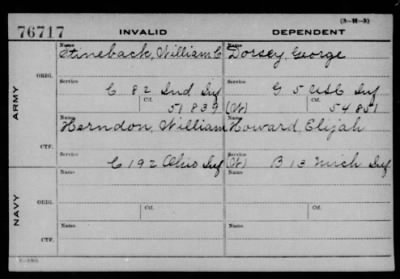 (3-H-3)
76717 INVALID DEPENDENT
Name Name
Stineback, William C Dorsey, George
ORIG.
Service Service
C 82 Ind Inf G 5 USC Inf
Ctf. Ctf.
51839 (W) 54851
ARMY
Name Name
Herndon, William Howard, Elijah
CTF.
Service Service
C 192 Ohio Inf (W) B 13 Mich Inf
Name Name
NAVY
ORIG.
Ctf. Ctf.
Name Name
CTF.